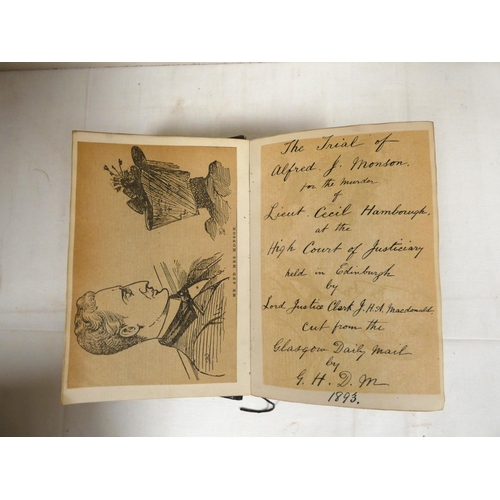 MR AND MRS MONSON
The Trial of
Alfred J. Monson.
for the murder
of
Lieut Cecil Hamborough.
at the
High Court of Justiciary
held in Edinburgh
by
Lord Justice Clerk J.H.A Macdonald.
cut from the
Glasgow Daily Mail
by
G. H. D. M
1893.